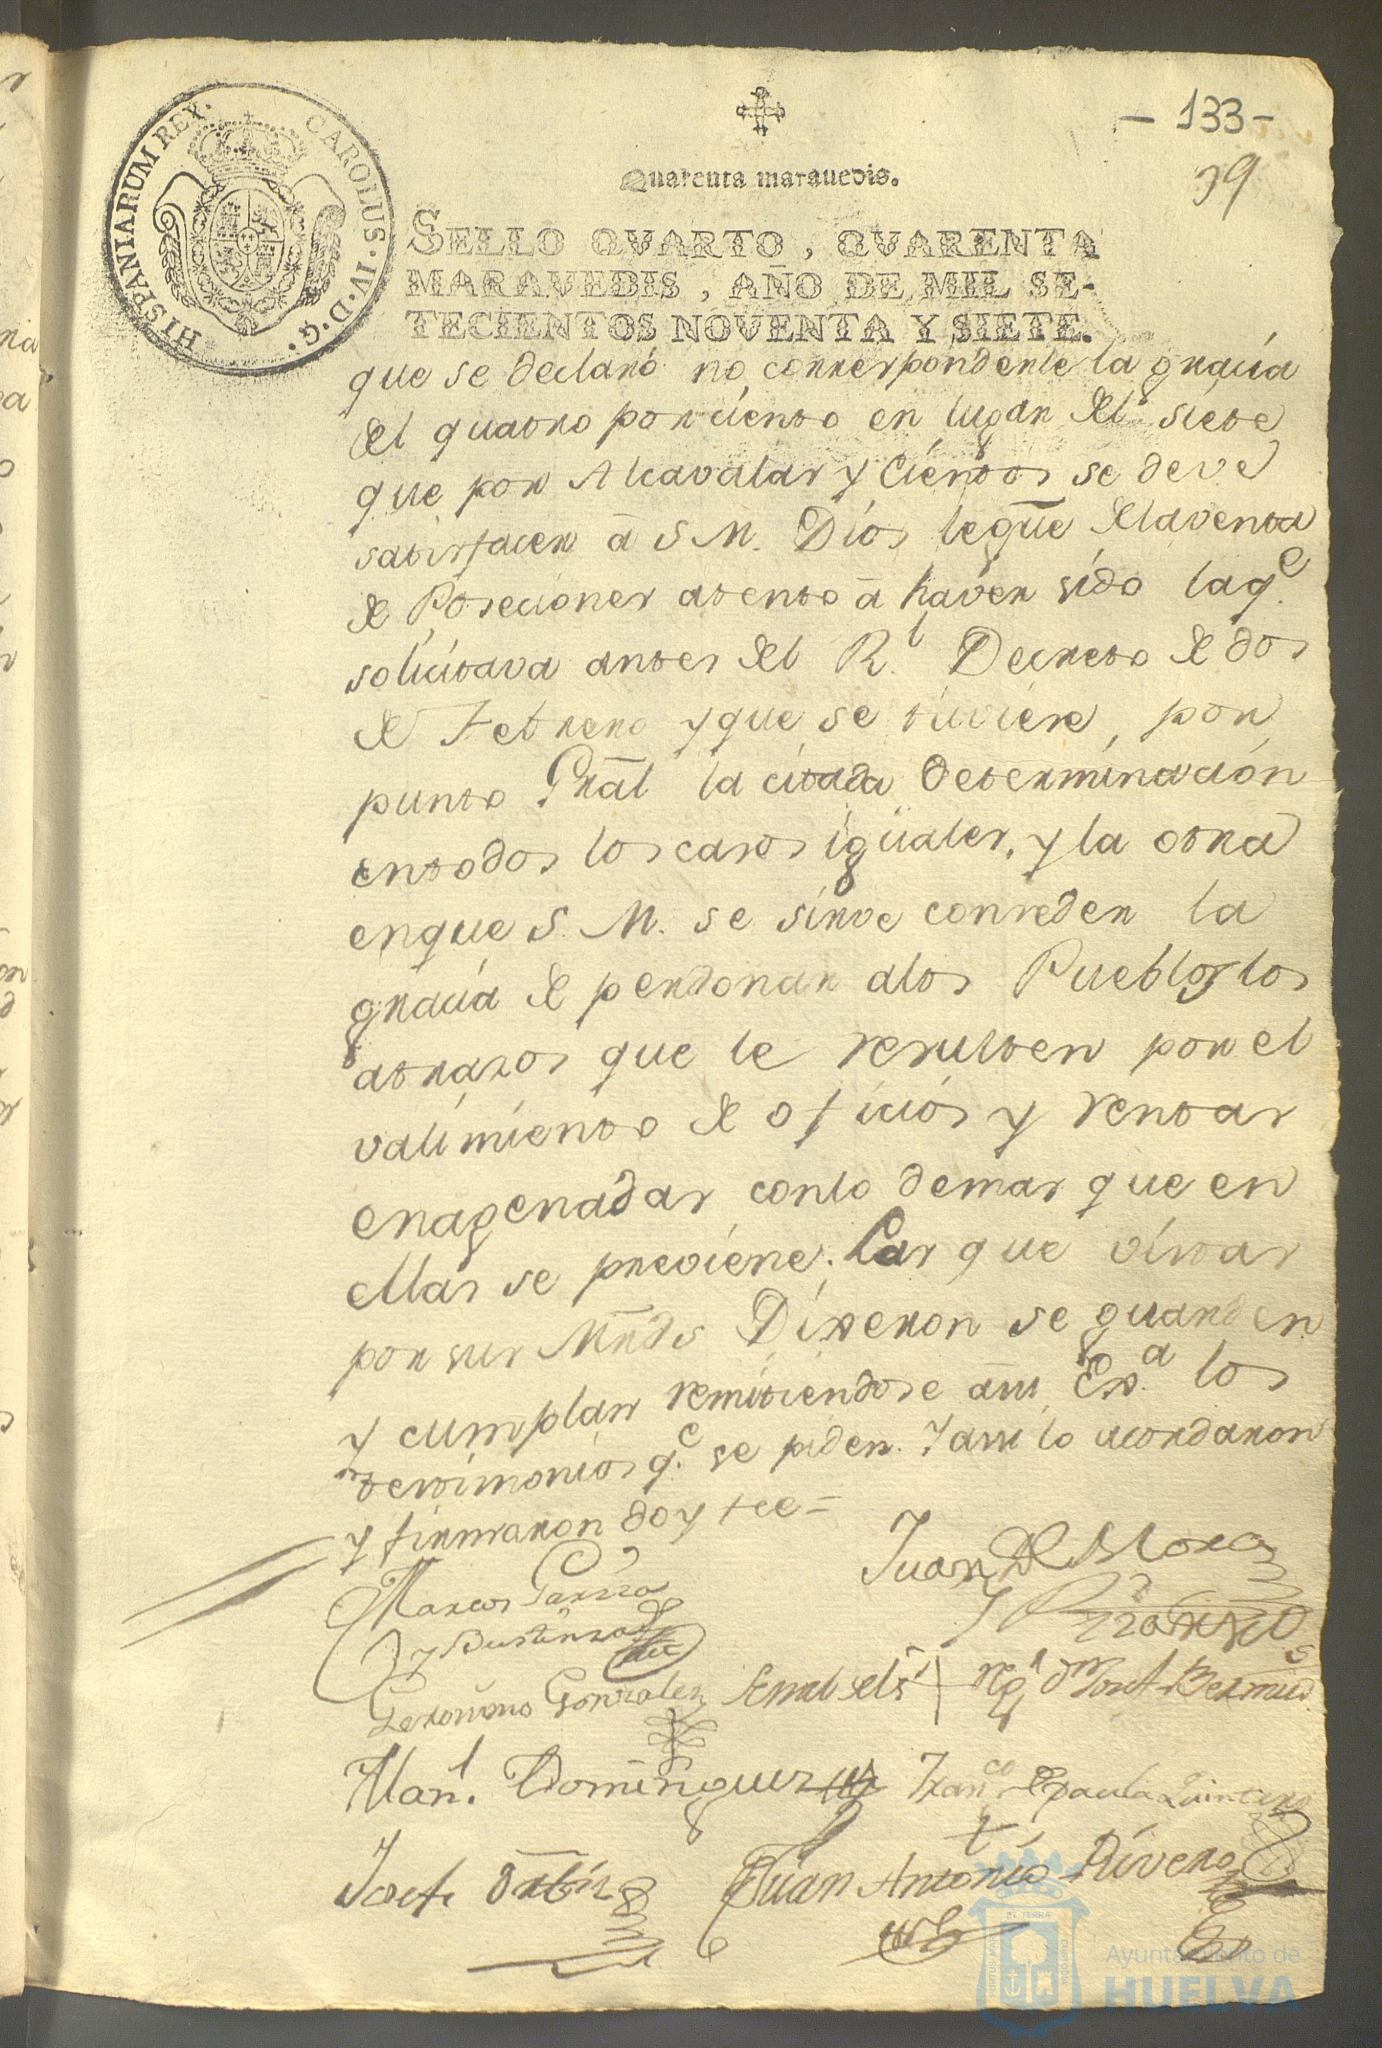 HISPANIARUM REX. CAROLUS·IV·D·G·
- 133 -
39
Quarenta marauedis.
SELLO QVARTO, QVARENTA
MARAVEDIS, AÑO DE MIL SE-
TECIENTOS NOVENTA Y SIETE.
que se declaró no correrpondente la gracia
del quatro por ciento en lugar del siete
que por Alcavalar y Cientos se deve
satirfacer ã S. M. Dios legũe dela venta
de Posecioner atento ã haver sido laq.e
solicitava antes del R.l Decreto de dos
de Febrero y que se tuviere, por
punto Grãl la citada determinación
entodos los casos igualer, y la otra
enque S. M. se sirve conceder la
gracia de perdonar alos Pueblos los
atrazos que le resulten por el
valimiento de oficios y rentar
enagenadar conlo demar que en
ellas se previene. Las que vistar
por sus Mr̃ds Dixeron se guarden
y cumplan remitiendose ãsu Ex.a los
testimonios q.e se piden. Y assi lo acordaron
y firmaron doy fee =
Juan de Mora
y Pizarro
Marcos Garzia
y Bustinza
Geronimo Gonzalez
Señal del S.r reg.r d.n Josef Bermud
Man.l Dominguez
Fran.co de paula Quintero
Josef Ortiz
Juan Antonio Rivero
Ayuntamiento de
HUELVA